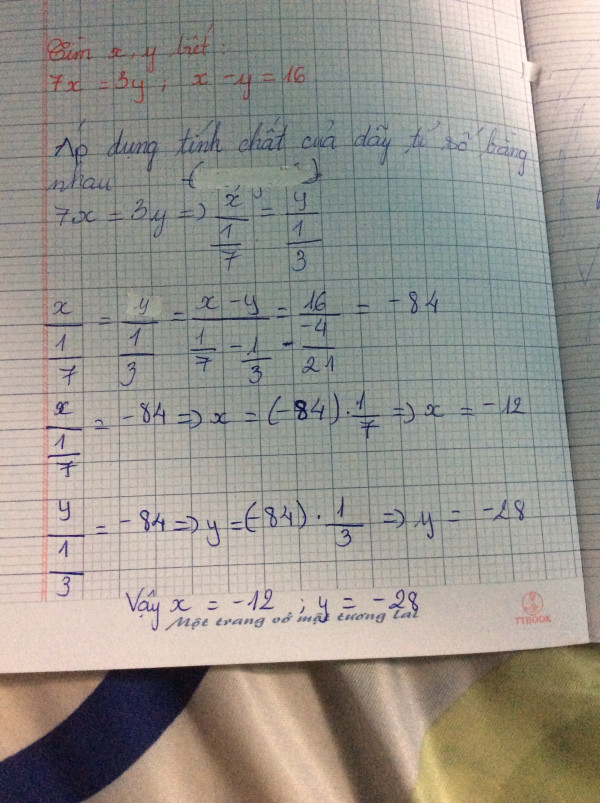 Tìm x, y biết:
7x = 3y ; x - y = 16
Áp dụng tính chất của dãy tỉ số bằng
nhau
7x = 3y => x/(1/7) = y/(1/3)
x/(1/7) = y/(1/3) = (x - y)/(1/7 - 1/3) = 16/(-4/21) = -84
x/(1/7) = -84 => x = (-84) . 1/7 => x = -12
y/(1/3) = -84 => y = (-84) . 1/3 => y = -28
Vậy x = -12 ; y = -28
Một trang vở một tương lai
TTBOOK